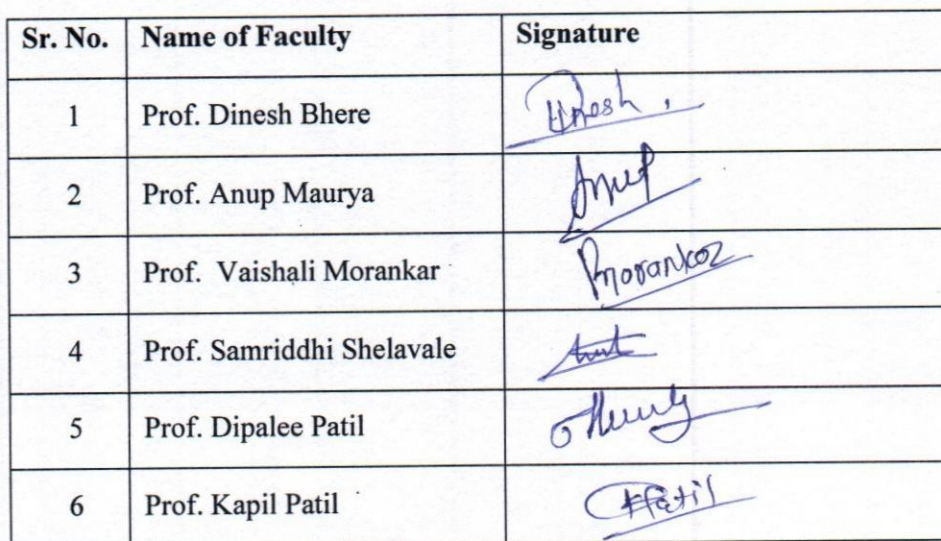 Sr. No. Name of Faculty Signature
1 Prof. Dinesh Bhere Dinesh
2 Prof. Anup Maurya Anup
3 Prof. Vaishali Morankar Morankar
4 Prof. Samriddhi Shelavale
5 Prof. Dipalee Patil
6 Prof. Kapil Patil KPatil